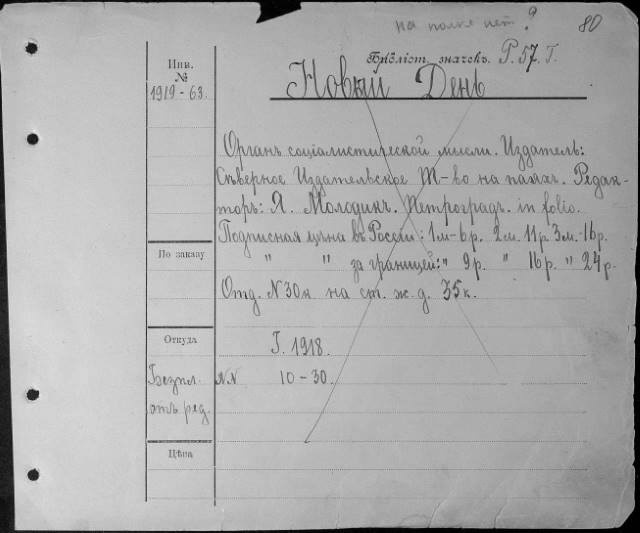 на полке нет? 80
Инв. №
1919 - 63.
Бібліот. значекъ. Р. 57. Г.
Новый День
Органъ соціалистической мысли. Издатель:
Сѣверное Издательское Т-во на паяхъ. Редак-
торъ: Я. Молодикъ. Петроградъ. in folio.
Подписная цѣна въ Россіи: 1 м - 6 р. 2 м. 11 р. 3 м. - 16 р.
По заказу
" " за границей: " 9 р. " 16 р. " 24 р.
Отд. N 30 к на ст. ж. д. 35 к.
Откуда
Г. 1918.
Безпл. N.N 10 - 30.
отъ ред.
Цѣна